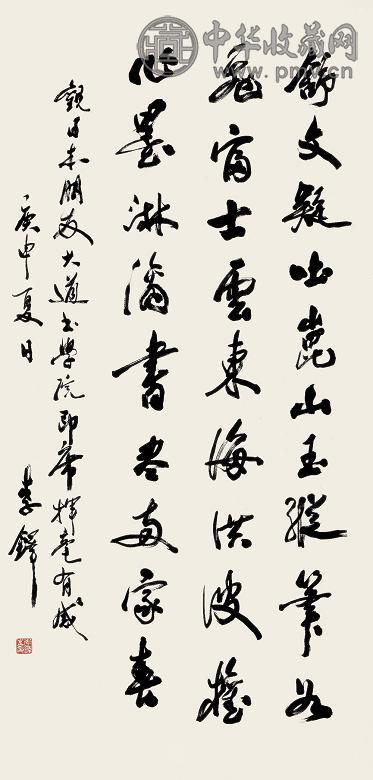 舒文疑吐崑山玉縱筆如
飛富士雲東海洪波權
作墨淋漓書盡兩家春
觀日本朋友大道書學院即席揮毫有感
庚申夏日 李鐸
中华收藏网